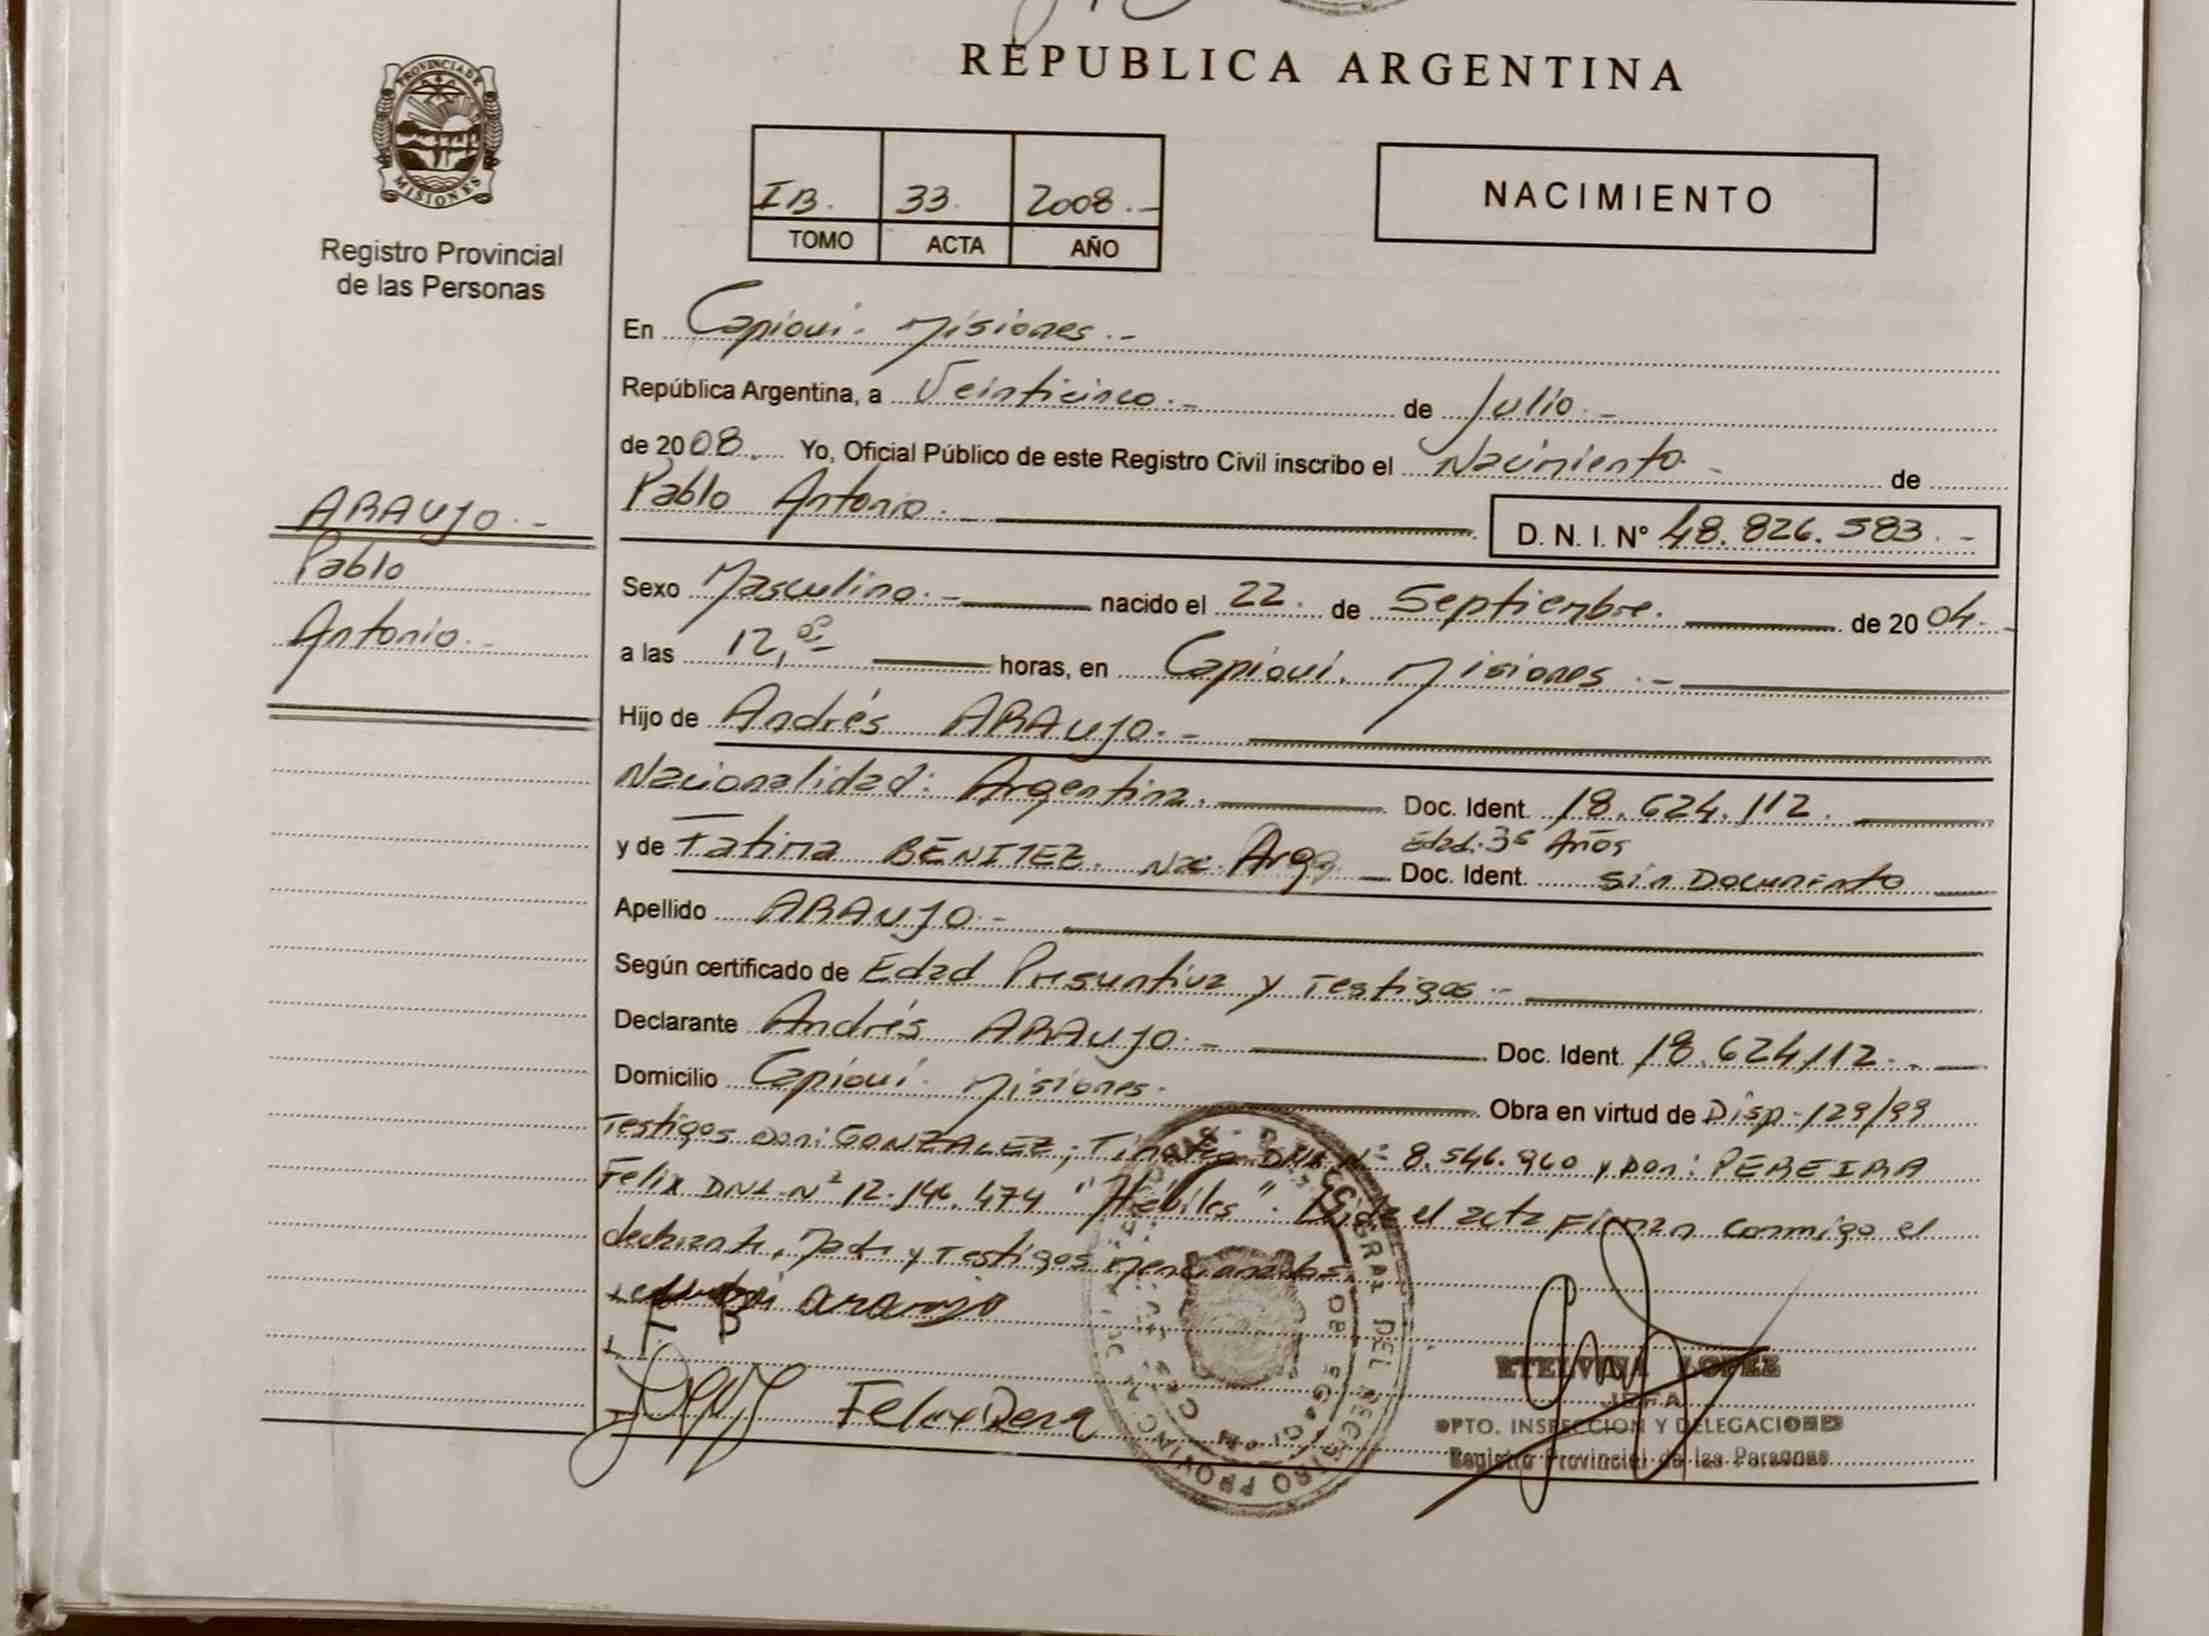 REPUBLICA ARGENTINA
PROVINCIA DE
MISIONES
Registro Provincial
de las Personas
IB. 33. 2008.-
TOMO ACTA AÑO
NACIMIENTO
En Capioví. Misiones.-
República Argentina, a Veinticinco.- de Julio.-
de 2008. Yo, Oficial Público de este Registro Civil inscribo el Nacimiento.- de
Pablo Antonio.- D. N. I. Nº 48.826.583.-
ARAUJO.-
Pablo
Antonio.-
Sexo Masculino.- nacido el 22. de Septiembre. de 2004.-
a las 12,00 horas, en Capioví. Misiones.-
Hijo de Andrés ARAUJO.-
Nacionalidad: Argentina. Doc. Ident. 18.624.112.
Edad: 36 Años
y de Fatima BENITEZ. Nac. Arg. Doc. Ident. Sin Documento
Apellido ARAUJO.-
Según certificado de Edad Presuntiva y Testigos.-
Declarante Andrés ARAUJO.- Doc. Ident. 18.624.112.-
Domicilio Capioví. Misiones. Obra en virtud de Disp.-129/99
Testigos Don: GONZALEZ; DNI Nº 8.546.960 y Don: PEREIRA
Felix DNI Nº 12.146.474 "Hábiles". el acta Firman conmigo el
declarante, Madre y Testigos mencionados.
araujo
T B
Felix
ETELVINA LOPEZ
JEFA
DPTO. INSPECCION Y DELEGACIONES
Registro Provincial de las Personas